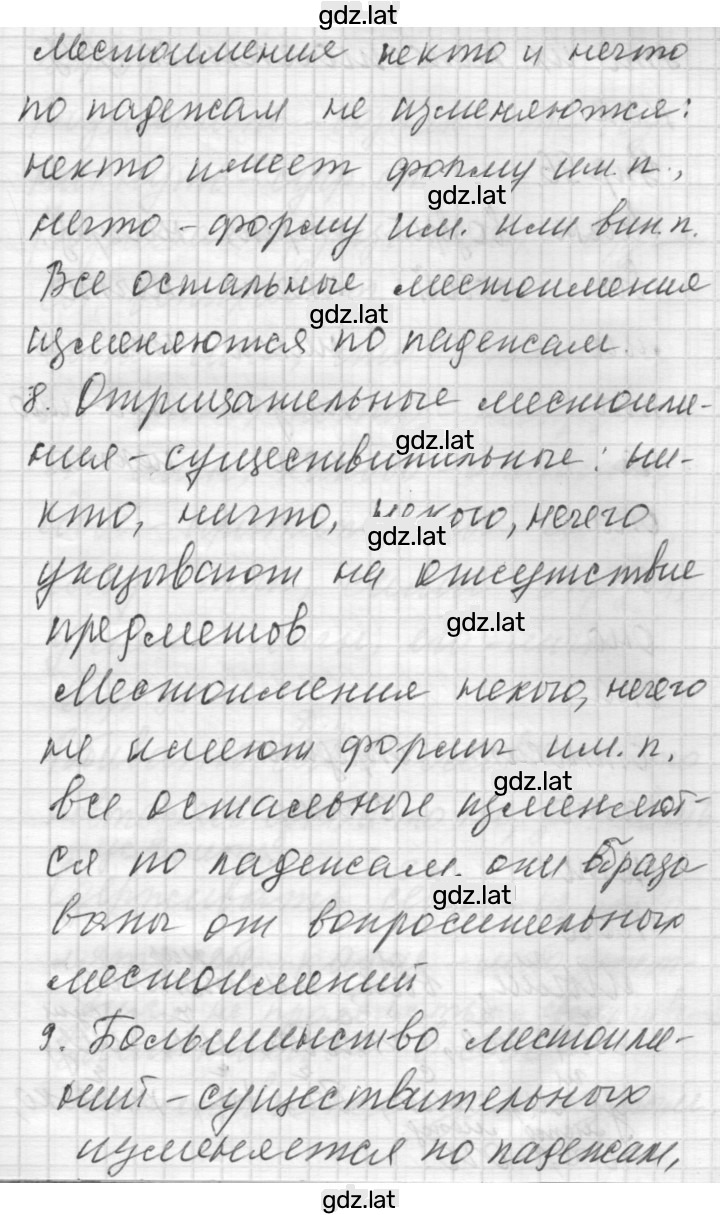 gdz.lat
Местоимения некто и нечто
по падежам не изменяются:
некто имеет форму им. п.,
gdz.lat
нечто - форму им. или вин. п.
Все остальные местоимения
gdz.lat
изменяются по падежам.
8. Отрицательные местоиме-
gdz.lat
ния - существительные: ни-
кто, ничто, некого, нечего
gdz.lat
указывают на отсутствие
предметов
gdz.lat
Местоимения некого, нечего
не имеют формы им. п.
gdz.lat
все остальные изменяют-
ся по падежам. они образо
gdz.lat
ваны от вопросительных
местоимений
9. Большинство местоиме-
ний - существительных
изменяется по падежам,
gdz.lat